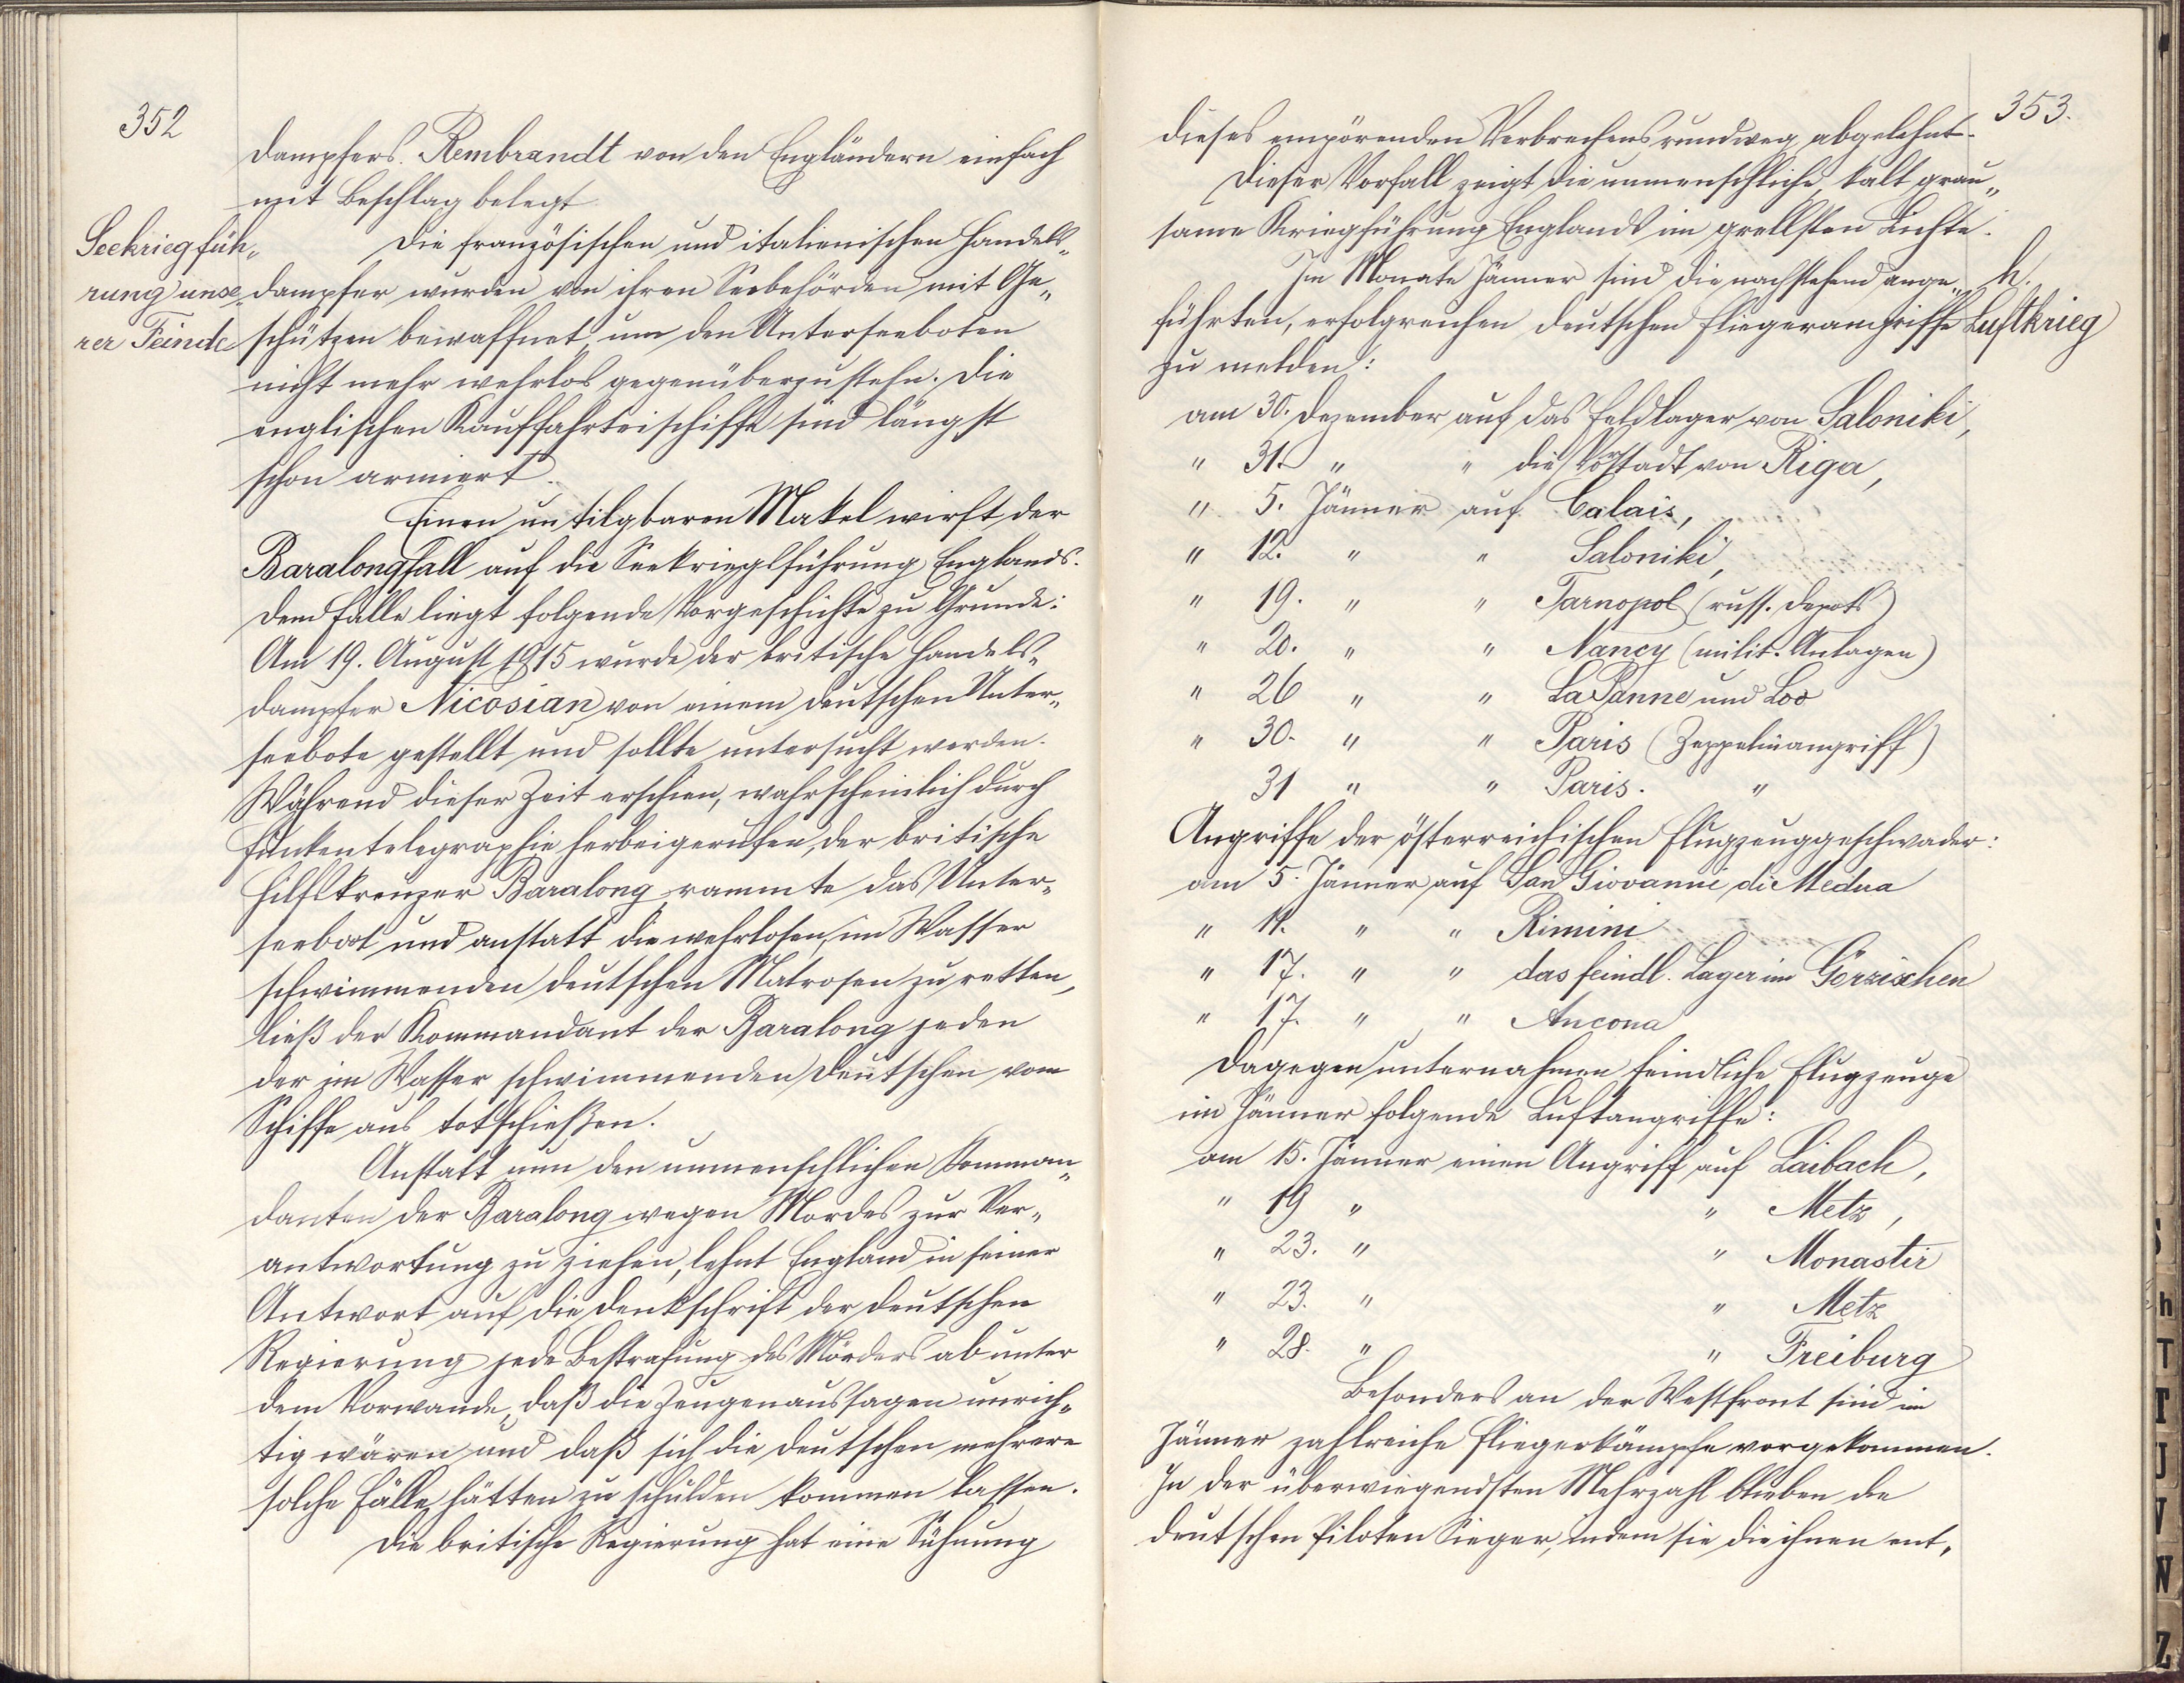 352
Dampfers Rembrandt von den Engländern einfach
mit Beschlag belegt
Seekriegfüh„
rung unse„
rer Feinde
Die französischen und italienischen Handels„
dampfer wurden von ihren Seebehörden mit Ge„
schützen bewaffnet, um den Unterseeboten
nicht mehr wehrlos gegenüberzustehn. Die
englischen Kauffahrteischiffe sind längst
schon armiert.
Einen untilgbaren Makel wirft der
Baralongfall auf die Seekrieglführung Englands.
Dem Falle liegt folgende Vorgeschichte zu Grunde:
Am 19. August 1915 wurde der britische Handels„
dampfer Nicosian von einem deutschen Unter„
seebote gestellt und sollte untersucht werden.
Während dieser Zeit erschien, wahrscheinlich durch
Funkentelegraphie herbeigerufen, der britische
Hilfskreuzer Baralong, rammte das Unter„
seeboot und anstatt die wehrlosen, im Wasser
schwimmenden deutschen Matrosen zu retten,
ließ der Kommandant der Baralong jeden
der im Wasser schwimmenden Deutschen vom
Schiffe aus totschießen.
Anstatt nun den unmenschlichen Komman„
danten der Baralong wegen Mordes zur Ver„
antwortung zu ziehen, lehnt England in seiner
Antwort auf die Denkschrift der deutschen
Regierung jede Bestrafung des Mörders ab unter
dem Vorwande, daß die Zeugenaussagen unrich„
tig wären und daß sich die Deutschen mehrere
solche Fälle hätten zu schulden kommen lassen.
Die britische Regierung hat eine Sühnung
353.
dieses empörenden Verbrechens rundweg abgelehnt.
Dieser Vorfall zeigt die unmenschliche, kalt grau„
same Kriegführung Englands im grellsten Lichte.
Im Monate Jänner sind die nachstehend ange„
h.
Luftkrieg
führten, erfolgreichen deutschen Fliegerangriffe
zu melden:
am 30. Dezember auf das Feldlager von Saloniki,
" 31. " " die Vorstadt von Riga,
" 5. Jänner auf Calais,
" 12. " " Saloniki,
" 19. " " Tarnopol (russ. Depots)
" 20. " " Nancy (milit. Anlagen)
" 26 " " La Panne und Loo
" 30. " " Paris (Zeppelinangriff)
31 " " Paris. "
Angriffe der österreichischen Flugzeuggeschwader:
am 5. Jänner auf San Giovanni di Medua
" 11. " " Rimini
" 17. " " das feindl. Lager im Görzischen
" 17. " " Ancona
Dagegen unternahmen feindliche Flugzeuge
im Jänner folgende Luftangriffe:
am 15. Jänner einen Angriff auf Laibach,
" 19 " " Metz,
" 23. " " Monastir
" 23. " " Metz
" 28. " " Freiburg
Besonders an der Westfront sind im
Jänner zahlreiche Fliegerkämpfe vorgekommen.
In der überwiegendsten Mehrzahl blieben die
deutschen Piloten Sieger, indem sie die ihnen ent„
S
h
T
T
U
V
W
Z